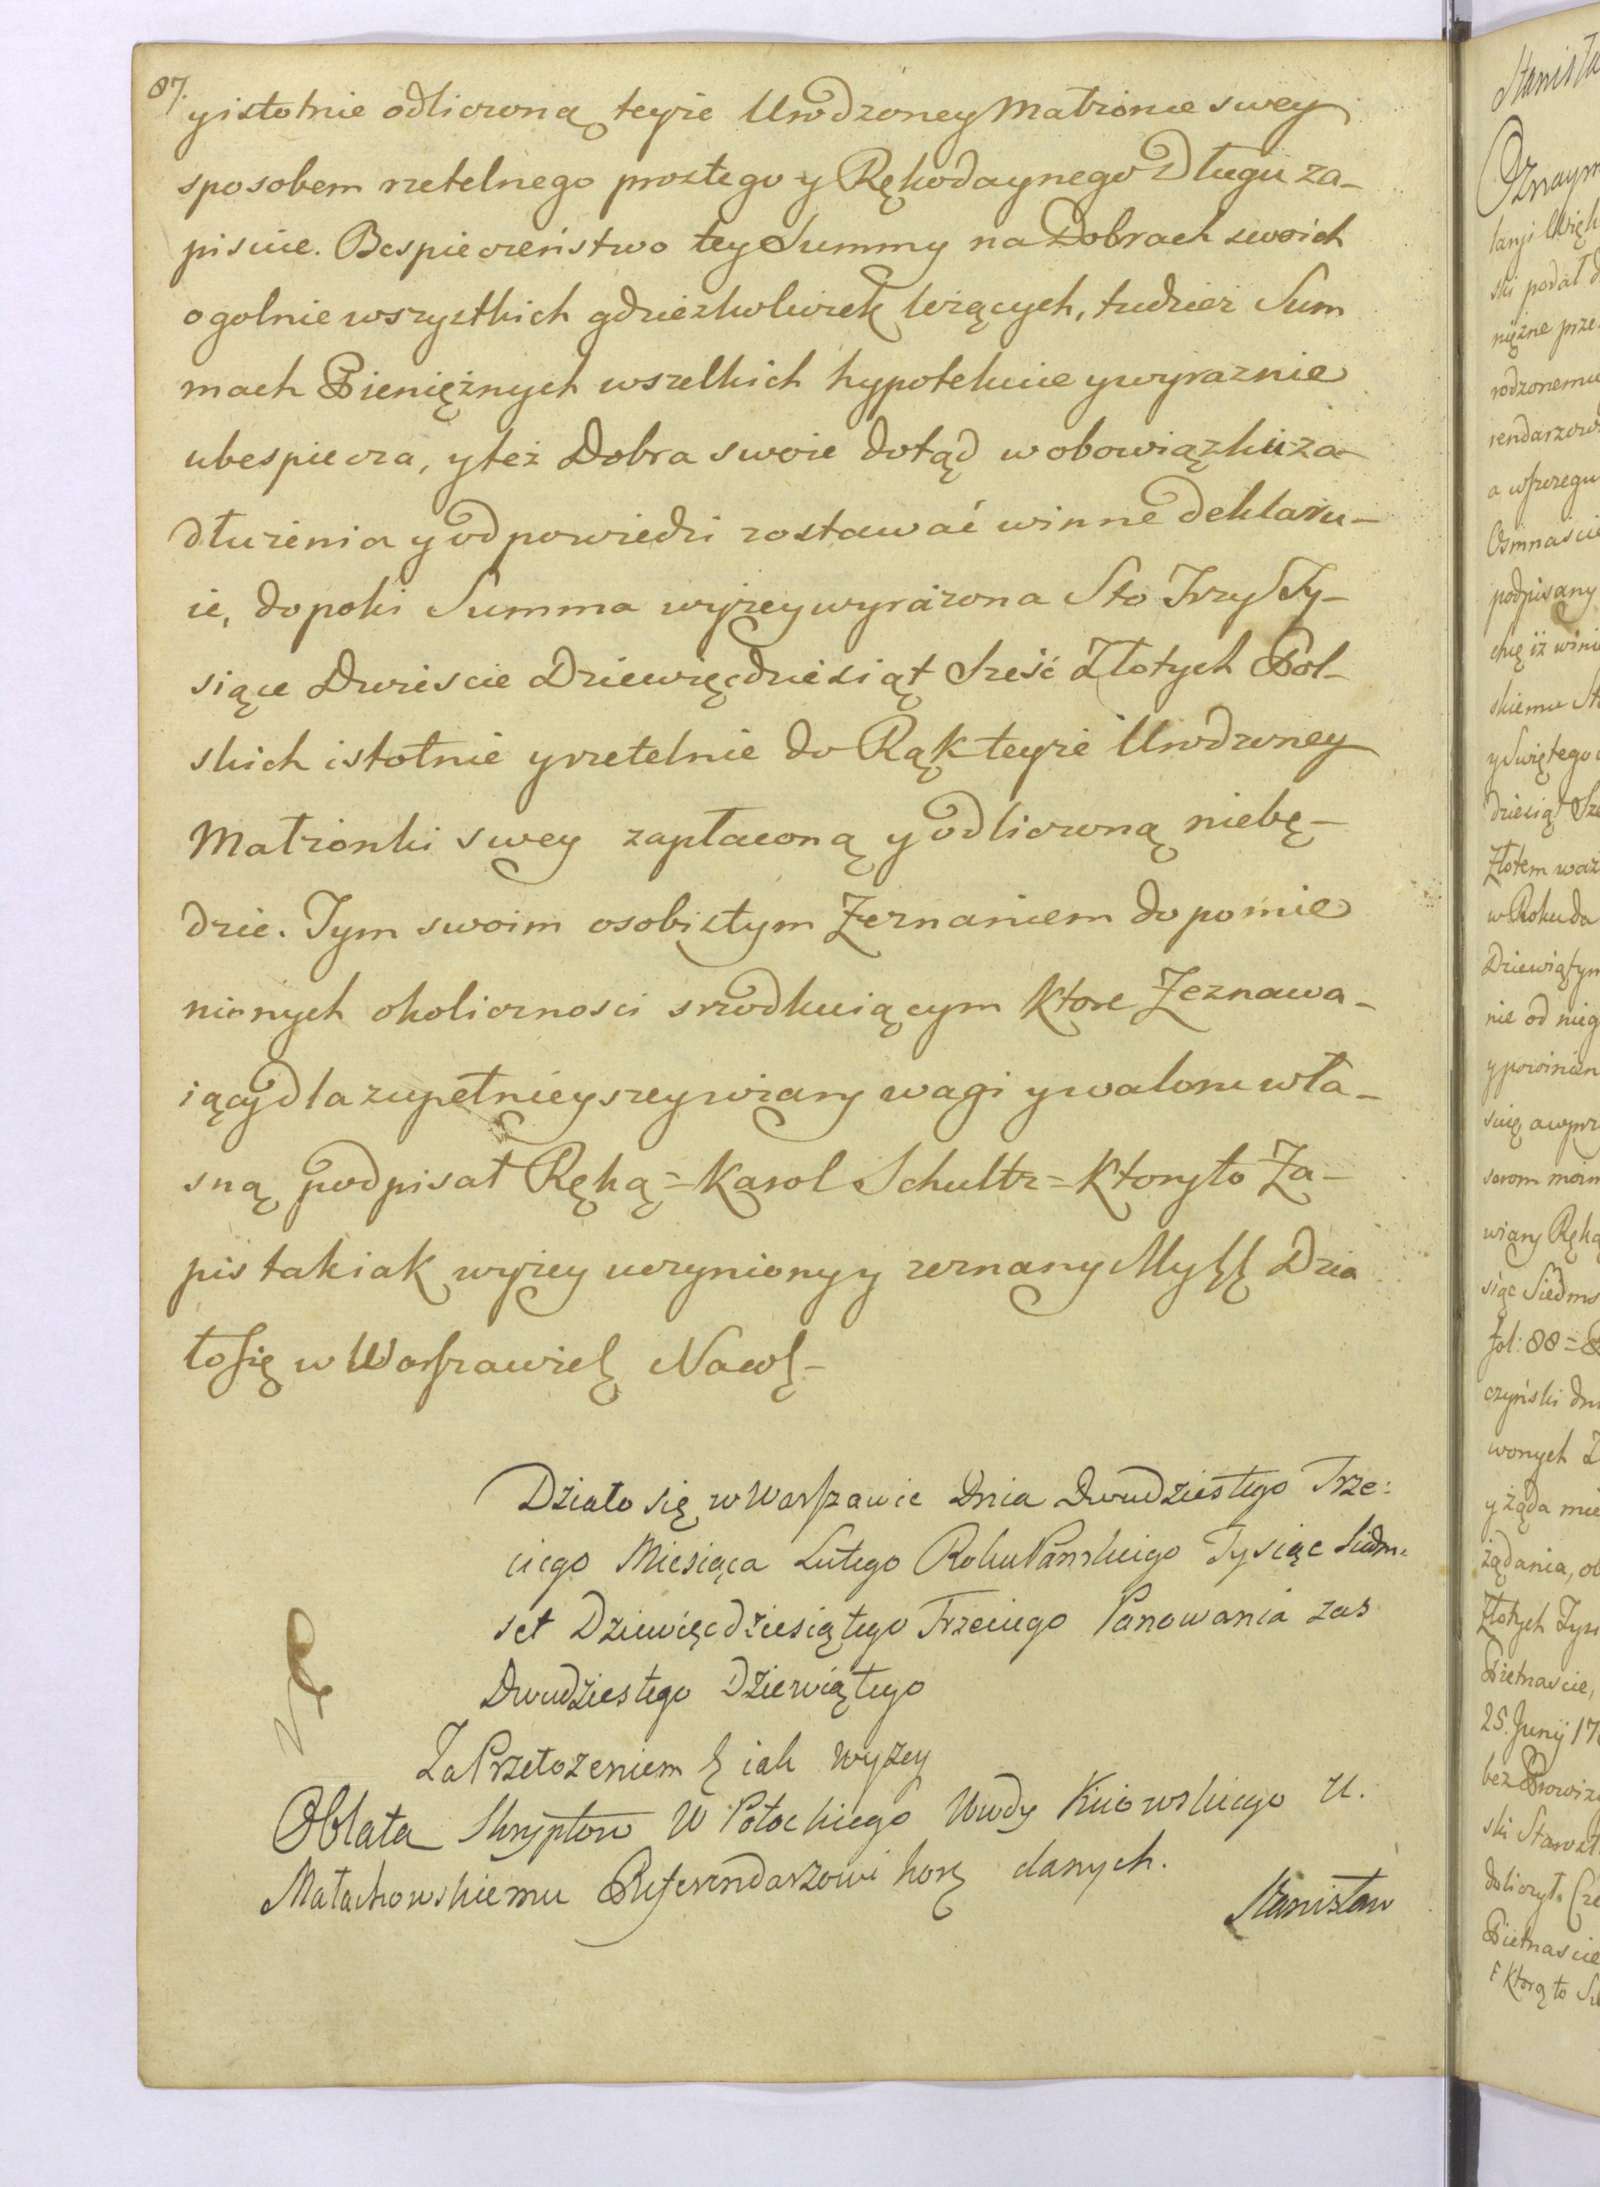 87.
y istotnie odliczoną teyże Urodzoney Małżonce swey
sposobem rzetelnego prostego y Rękodaynego Długu za-
pisuie. Bespieczeństwo tey Summy na Dobrach swoich
ogolnie wszystkich gdzieżkolwiek leżących, tudzież Sum
mach Pieniężnych wszelkich hypotekuie y wyraznie
ubespiecza, y też Dobra swoie dotąd w obowiązku za-
dłużenia y odpowiedzi zostawać winne deklaru-
ie, dopoki Summa wyżey wyrażona Sto Trzy Ty-
siące Dwiescie Dziewięcdziesiąt Sześć Złotych Pol-
skich istotnie y rzetelnie do Rąk teyże Urodzoney
Małżonki swey zapłaconą y odliczoną niebę-
dzie. Tym swoim osobistym Zeznaniem do pomie
nionych okoliczności srzodkuiącym ktore Zeznawa-
iący dla zupełnieyszey wiary wagi y waloru wła-
sną podpisał Ręką = Karol Schultz = Ktory to Za-
pis tak iak wyżey uczyniony y zeznany My Dzia
ło się w Warszawie Naw
Działo się w Warszawie Dnia Dwudziestego Trze:
ciego Miesiąca Lutego Roku Pańskiego Tysiąc Siedm
set Dziewięcdziesiątego Trzeciego Panowania zas
Dwudziestego Dziewiątego
Za Przełożeniem iak wyżey
Oblata Skryptow W Potockiego Wwdy Kiiowskiego U.
Małachowskiemu Referendarzowi kor danych.
Stanisław
Stanisła
Oznaym
ski podał d
nięźne prze
rodzonemu
rendarzow
a w szczegu
Osmnaście
podpisany
skiemu St
y Swiętego
dziesiąt Sze
Złotem waż
w Roku da
Dziewiątym
nie od nieg
y powinien
serom moim
wiary Ręką
siąc Siedms
fol: 88 =
czyński
wonych Z
y żąda mie
żądania, ob
Złotych Tysi
Pietnaście,
25. Junij 17
bez Prowiz
ski Starost
doliczył. Cze
Pietnaście
Ktorą to Su